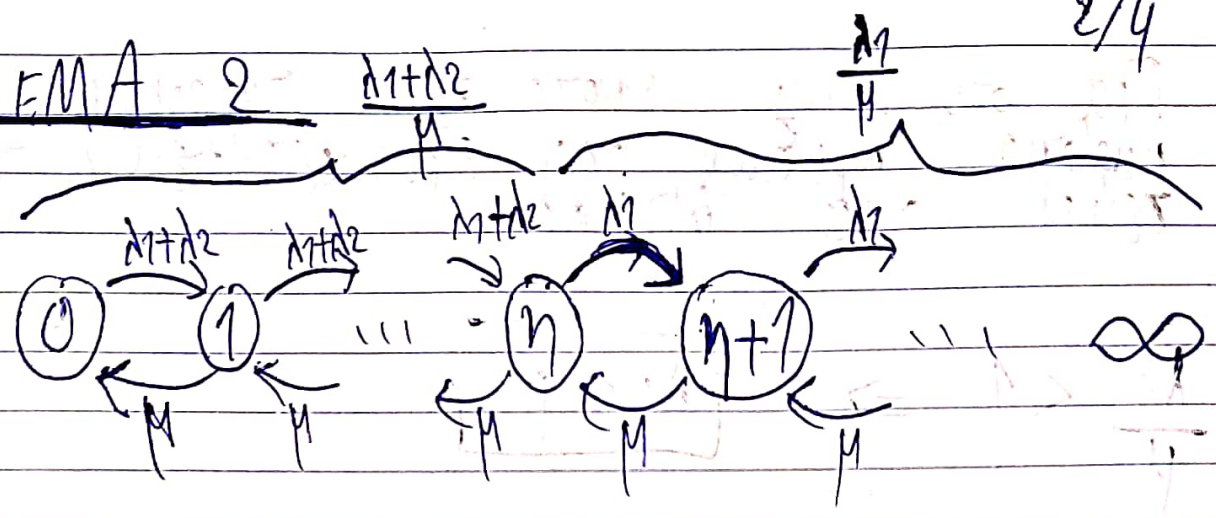 2/4
EMA 2
λ1+λ2/μ
λ1/μ
λ1+λ2 λ1+λ2 λ1+λ2 λ1 λ1
0 1 ... n n+1 ... ∞
μ μ μ μ μ